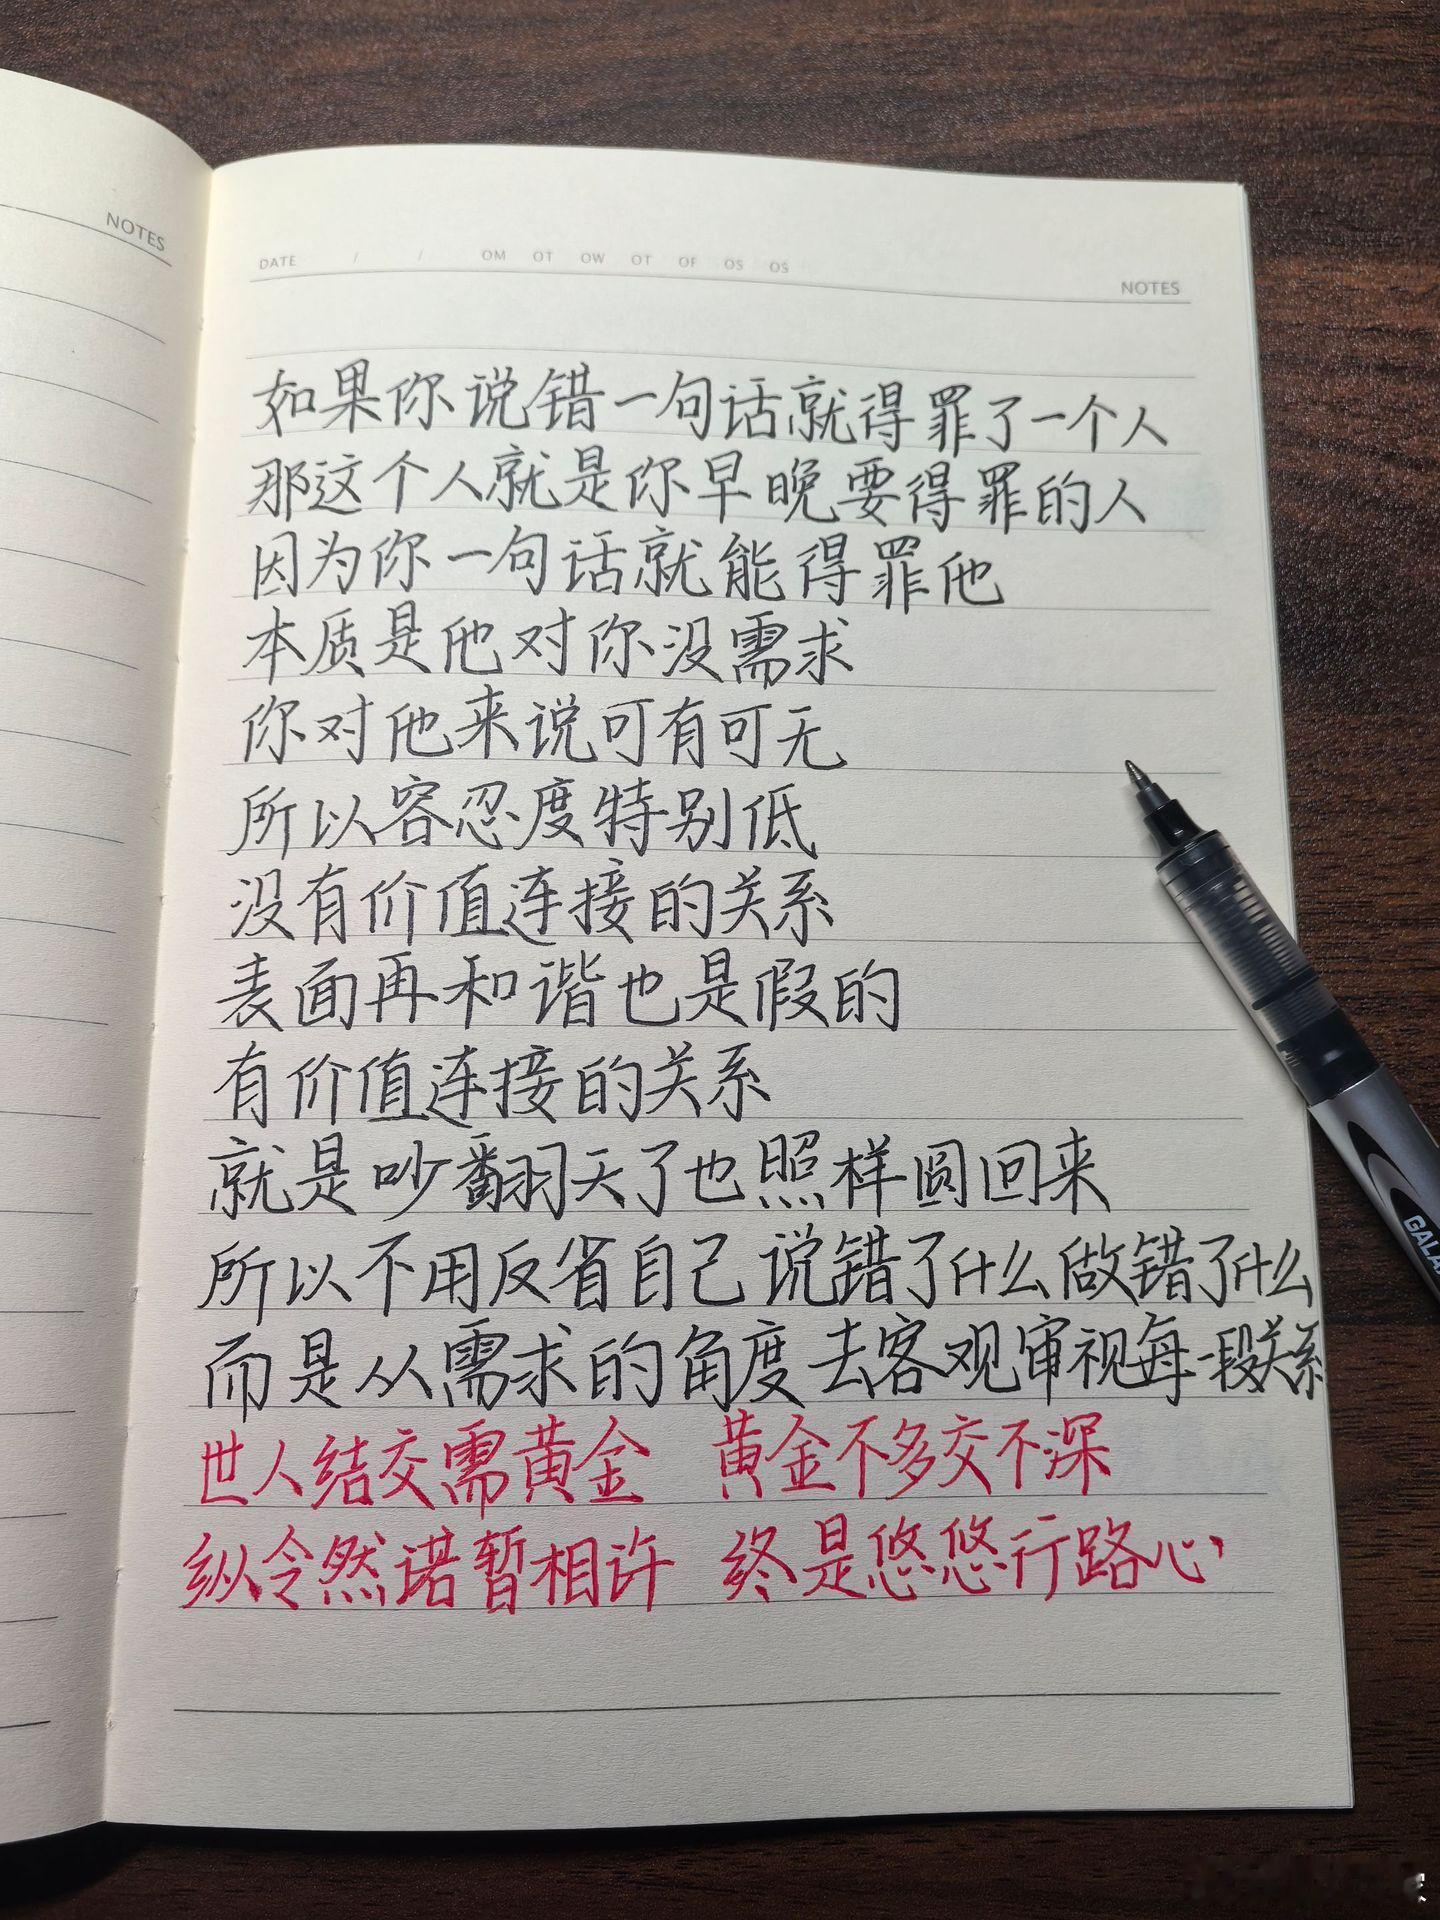 NOTES
DATE / / OM OT OW OT OF OS OS
NOTES
如果你说错一句话就得罪了一个人
那这个人就是你早晚要得罪的人
因为你一句话就能得罪他
本质是他对你没需求
你对他来说可有可无
所以容忍度特别低
没有价值连接的关系
表面再和谐也是假的
有价值连接的关系
就是吵翻天了也照样圆回来
所以不用反省自己说错了什么做错了什么
而是从需求的角度去客观审视每一段关系
世人结交需黄金 黄金不多交不深
纵令然诺暂相许 终是悠悠行路心